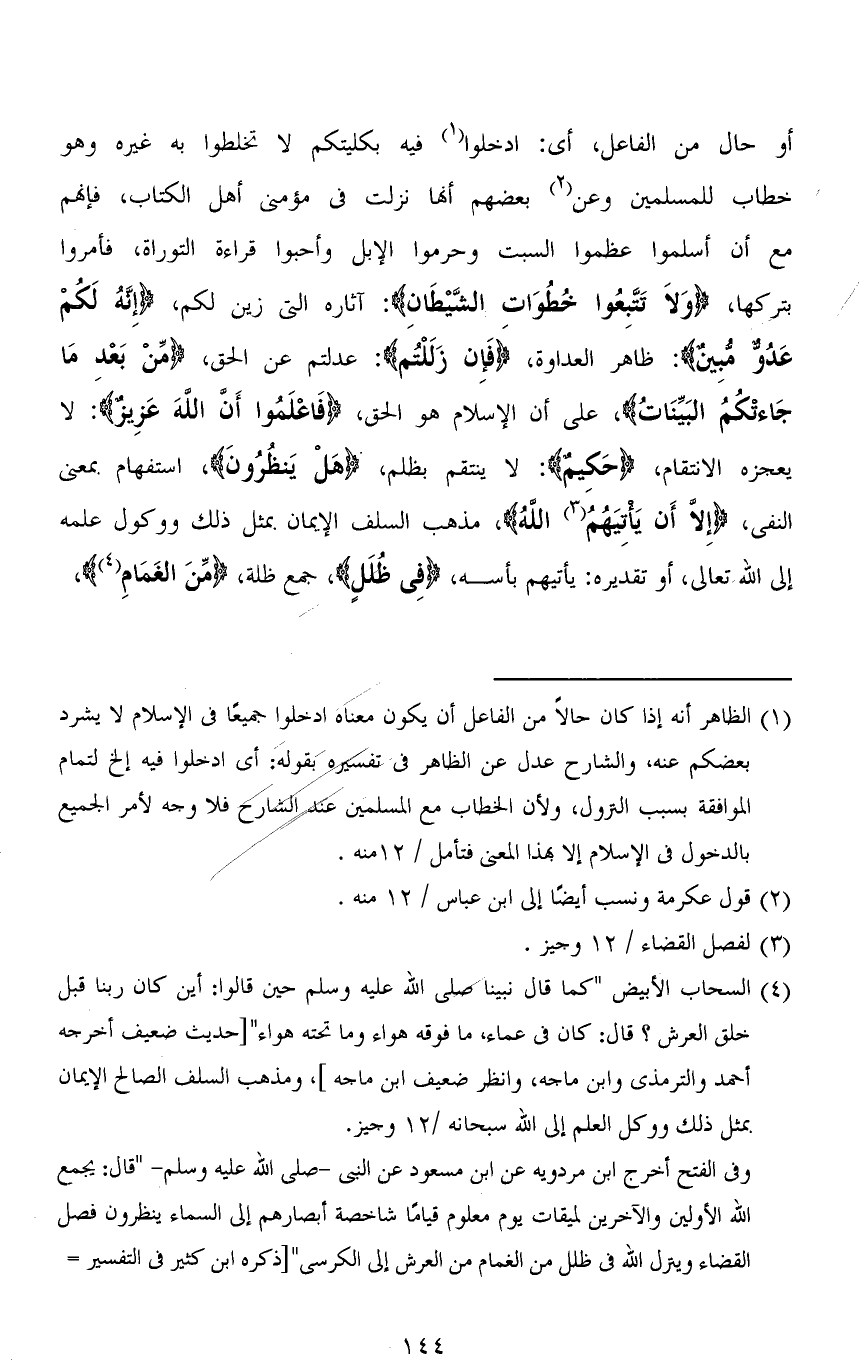 أو حال من الفاعل، أى: ادخلوا(١) فيه بكليتكم لا تخلطوا به غيره وهو
خطاب للمسلمين وعن(٢) بعضهم أنها نزلت فى مؤمنى أهل الكتاب، فإنهم
مع أن أسلموا عظموا السبت وحرموا الإبل وأحبوا قراءة التوراة، فأمروا
بتركها، ﴿وَلاَ تَتَّبِعُوا خُطُوَاتِ الشَّيْطَانِ﴾: آثاره التى زين لكم، ﴿إِنَّهُ لَكُمْ
عَدُوٌّ مُّبِينٌ﴾: ظاهر العداوة، ﴿فَإِن زَلَلْتُم﴾: عدلتم عن الحق، ﴿مِّنْ بَعْدِ مَا
جَاءتْكُمُ البَيِّنَاتُ﴾، على أن الإسلام هو الحق، ﴿فَاعْلَمُوا أَنَّ اللَّهَ عَزِيزٌ﴾: لا
يعجزه الانتقام، ﴿حَكِيمٌ﴾: لا ينتقم بظلم، ﴿هَلْ يَنظُرُونَ﴾، استفهام بمعنى
النفى، ﴿إِلاَّ أَن يَأْتِيَهُمُ(٣) اللَّهُ﴾، مذهب السلف الإيمان بمثل ذلك ووكول علمه
إلى الله تعالى، أو تقديره: يأتيهم بأسـه، ﴿فِى ظُلَلٍ﴾، جمع ظلة، ﴿مِّنَ الغَمَامِ(٤)﴾،
(١) الظاهر أنه إذا كان حالاً من الفاعل أن يكون معناه ادخلوا جميعًا فى الإسلام لا يشرد
بعضكم عنه، والشارح عدل عن الظاهر فى تفسيره بقوله: أى ادخلوا فيه إلخ لتمام
الموافقة بسبب النزول، ولأن الخطاب مع المسلمين عند الشارح فلا وجه لأمر الجميع
بالدخول فى الإسلام إلا بهذا المعنى فتأمل / ١٢منه .
(٢) قول عكرمة ونسب أيضًا إلى ابن عباس / ١٢ منه .
(٣) لفصل القضاء / ١٢ وجيز .
(٤) السحاب الأبيض "كما قال نبينا صلى الله عليه وسلم حين قالوا: أين كان ربنا قبل
خلق العرش ؟ قال: كان فى عماء، ما فوقه هواء وما تحته هواء"[حديث ضعيف أخرجه
أحمد والترمذى وابن ماجه، وانظر ضعيف ابن ماجه ]، ومذهب السلف الصالح الإيمان
بمثل ذلك ووكل العلم إلى الله سبحانه /١٢ وجيز.
وفى الفتح أخرج ابن مردويه عن ابن مسعود عن النبى -صلى الله عليه وسلم- "قال: يجمع
الله الأولين والآخرين لميقات يوم معلوم قيامًا شاخصة أبصارهم إلى السماء ينظرون فصل
القضاء وينزل الله فى ظلل من الغمام من العرش إلى الكرسى"[ذكره ابن كثير فى التفسير =
١٤٤